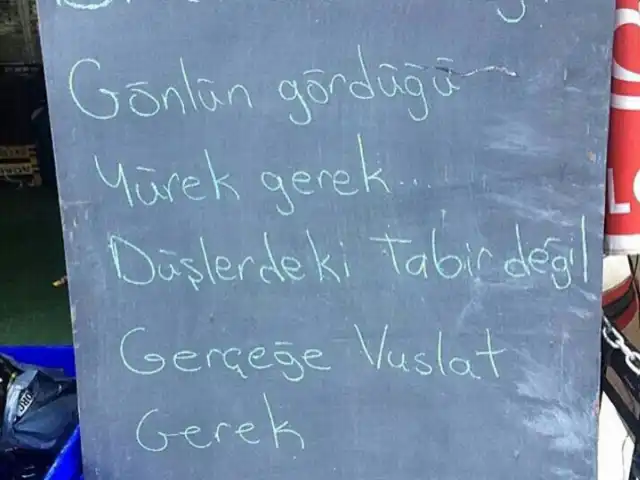 Gönlün gördüğü
Yürek gerek...
Düşlerdeki tabir değil
Gerçeğe Vuslat
Gerek